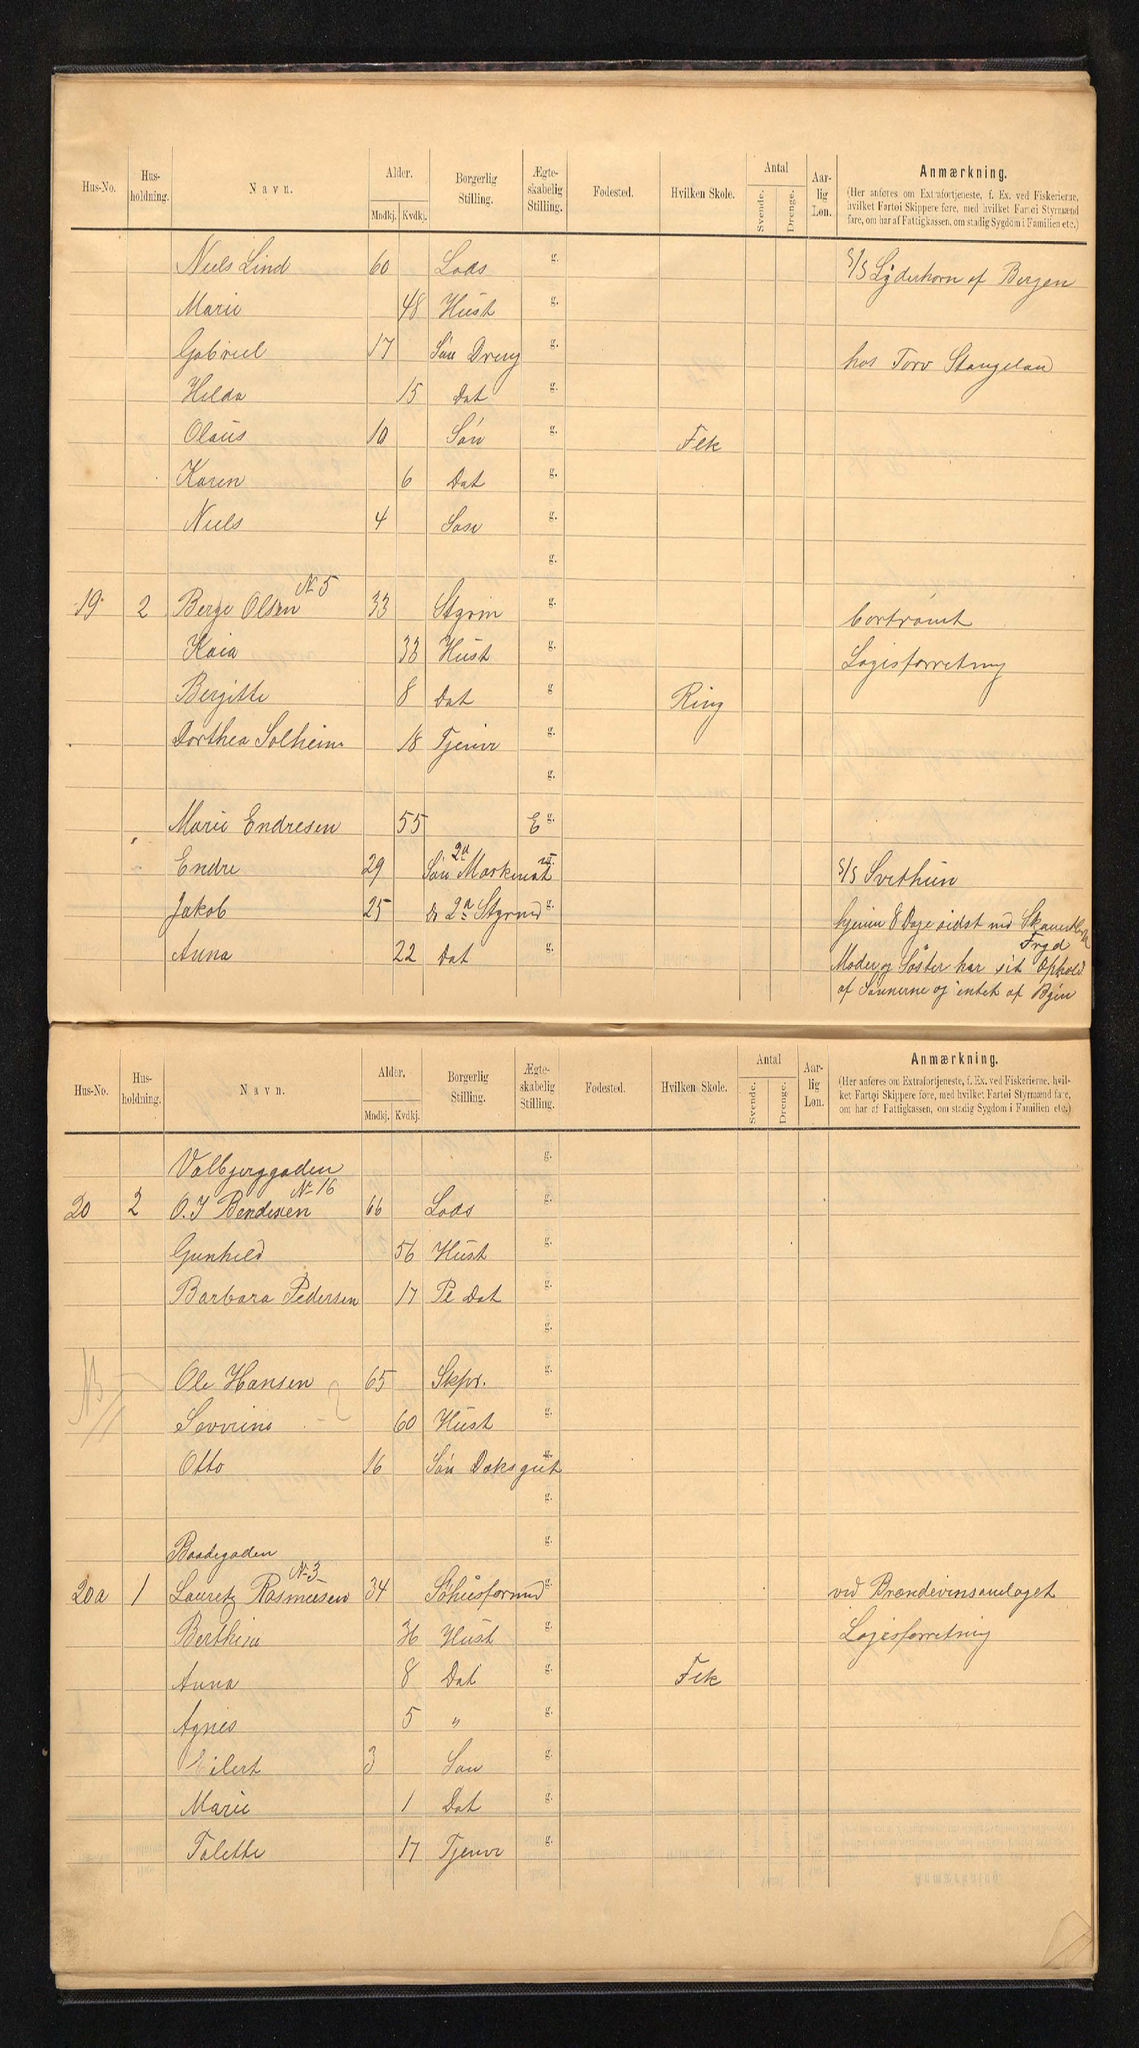 Hus-No. Hus-holdning. Navn. Alder. Mndkj. Kvdkj. Borgerlig Stilling. Ægte-skabelig Stilling. Fødested. Hvilken Skole. Antal Svende. Drenge. Aar-lig Løn. Anmærkning.
(Her anføres om Extrafortjeneste, f. Ex. ved Fiskerierne, hvilket Fartøi Skippere føre, med hvilket Fartøi Styrmænd fare, om har af Fattigkassen, om stadig Sygdom i Familien etc.)
Niels Lind 60 Lods g. S/S Lyderhorn af Bergen
Marie 48 Hust g.
Gabriel 17 Søn Dreng g. hos Torv Stangelan
Hilda 15 Dat g.
Olaus 10 Søn g. Flk
Karen 6 Dat g.
Niels 4 Søn g.
g.
No 5
19 2 Berge Olsen 33 Styrm g. bortrømt
Kaia 33 Hust g. Logisforretning
Bergitte 8 Dat g Ring
Dorthea Solheim 18 Tjener g.
g.
Marie Endresen 55 E g.
Endre 29 Søn 2n Maskinist g. S/S Svithun
Jakob 25 do 2n Styrmd g. hjemme 8 Dage sidst med
Fryd
Anna 22 Dat g. Moder og Søster har sit Ophold
af Sønnerne og intet af Byen
Hus-No. Hus-holdning. Navn. Alder. Mndkj. Kvdkj. Borgerlig Stilling. Ægte-skabelig Stilling. Fødested. Hvilken Skole. Antal Svende. Drenge. Aar-lig Løn. Anmærkning.
(Her anføres om Extrafortjeneste, f. Ex. ved Fiskerierne, hvil-ket Fartøi Skippere føre, med hvilket Fartøi Styrmænd fare, om har af Fattigkassen, om stadig Sygdom i Familien etc.)
Valbjerggaden g.
No 16
20 2 O. J Bendixen 66 Lods g.
Gunhild 56 Hust g.
Barbara Pedersen 17 Pl Dat g.
g.
Ole Hansen 65 Skpr. g.
Severine 60 Hust g.
Otto 16 Søn Dæksgut g.
g.
Baadegaden g.
No 3
20a 1 Lauretz Rasmussen 34 Søhusformd g. ved Brændevinsamlaget
Berthine 36 Hust g. Logisforretning
Anna 8 Dat g. Flk
Agnes 5 " g.
Eilert 3 Søn g.
Marie 1 Dat g.
Talette 17 Tjener g.